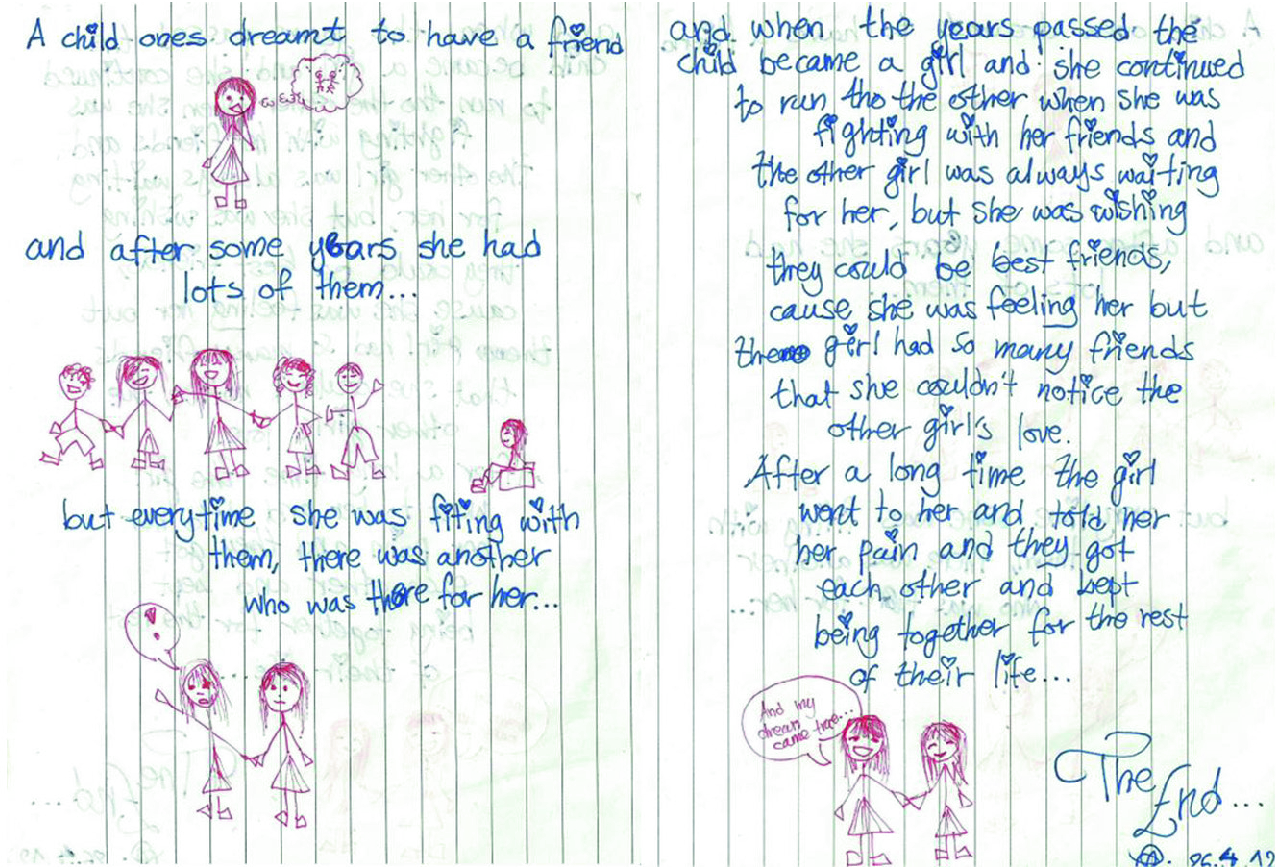 A child ones dreamt to have a friend
and after some years she had
lots of them...
but everytime she was fiting with
them, there was another
who was there for her...
and when the years passed the
child became a girl and she continued
to run tho the other when she was
fighting with her friends and
the other girl was always waiting
for her, but she was wishing
they could be best friends,
cause she was feeling her but
the girl had so many friends
that she couldn't notice the
other girl's love.
After a long time the girl
went to her and told her
her pain and they got
each other and kept
being together for the rest
of their life...
And my
dream
came true...
The
End...